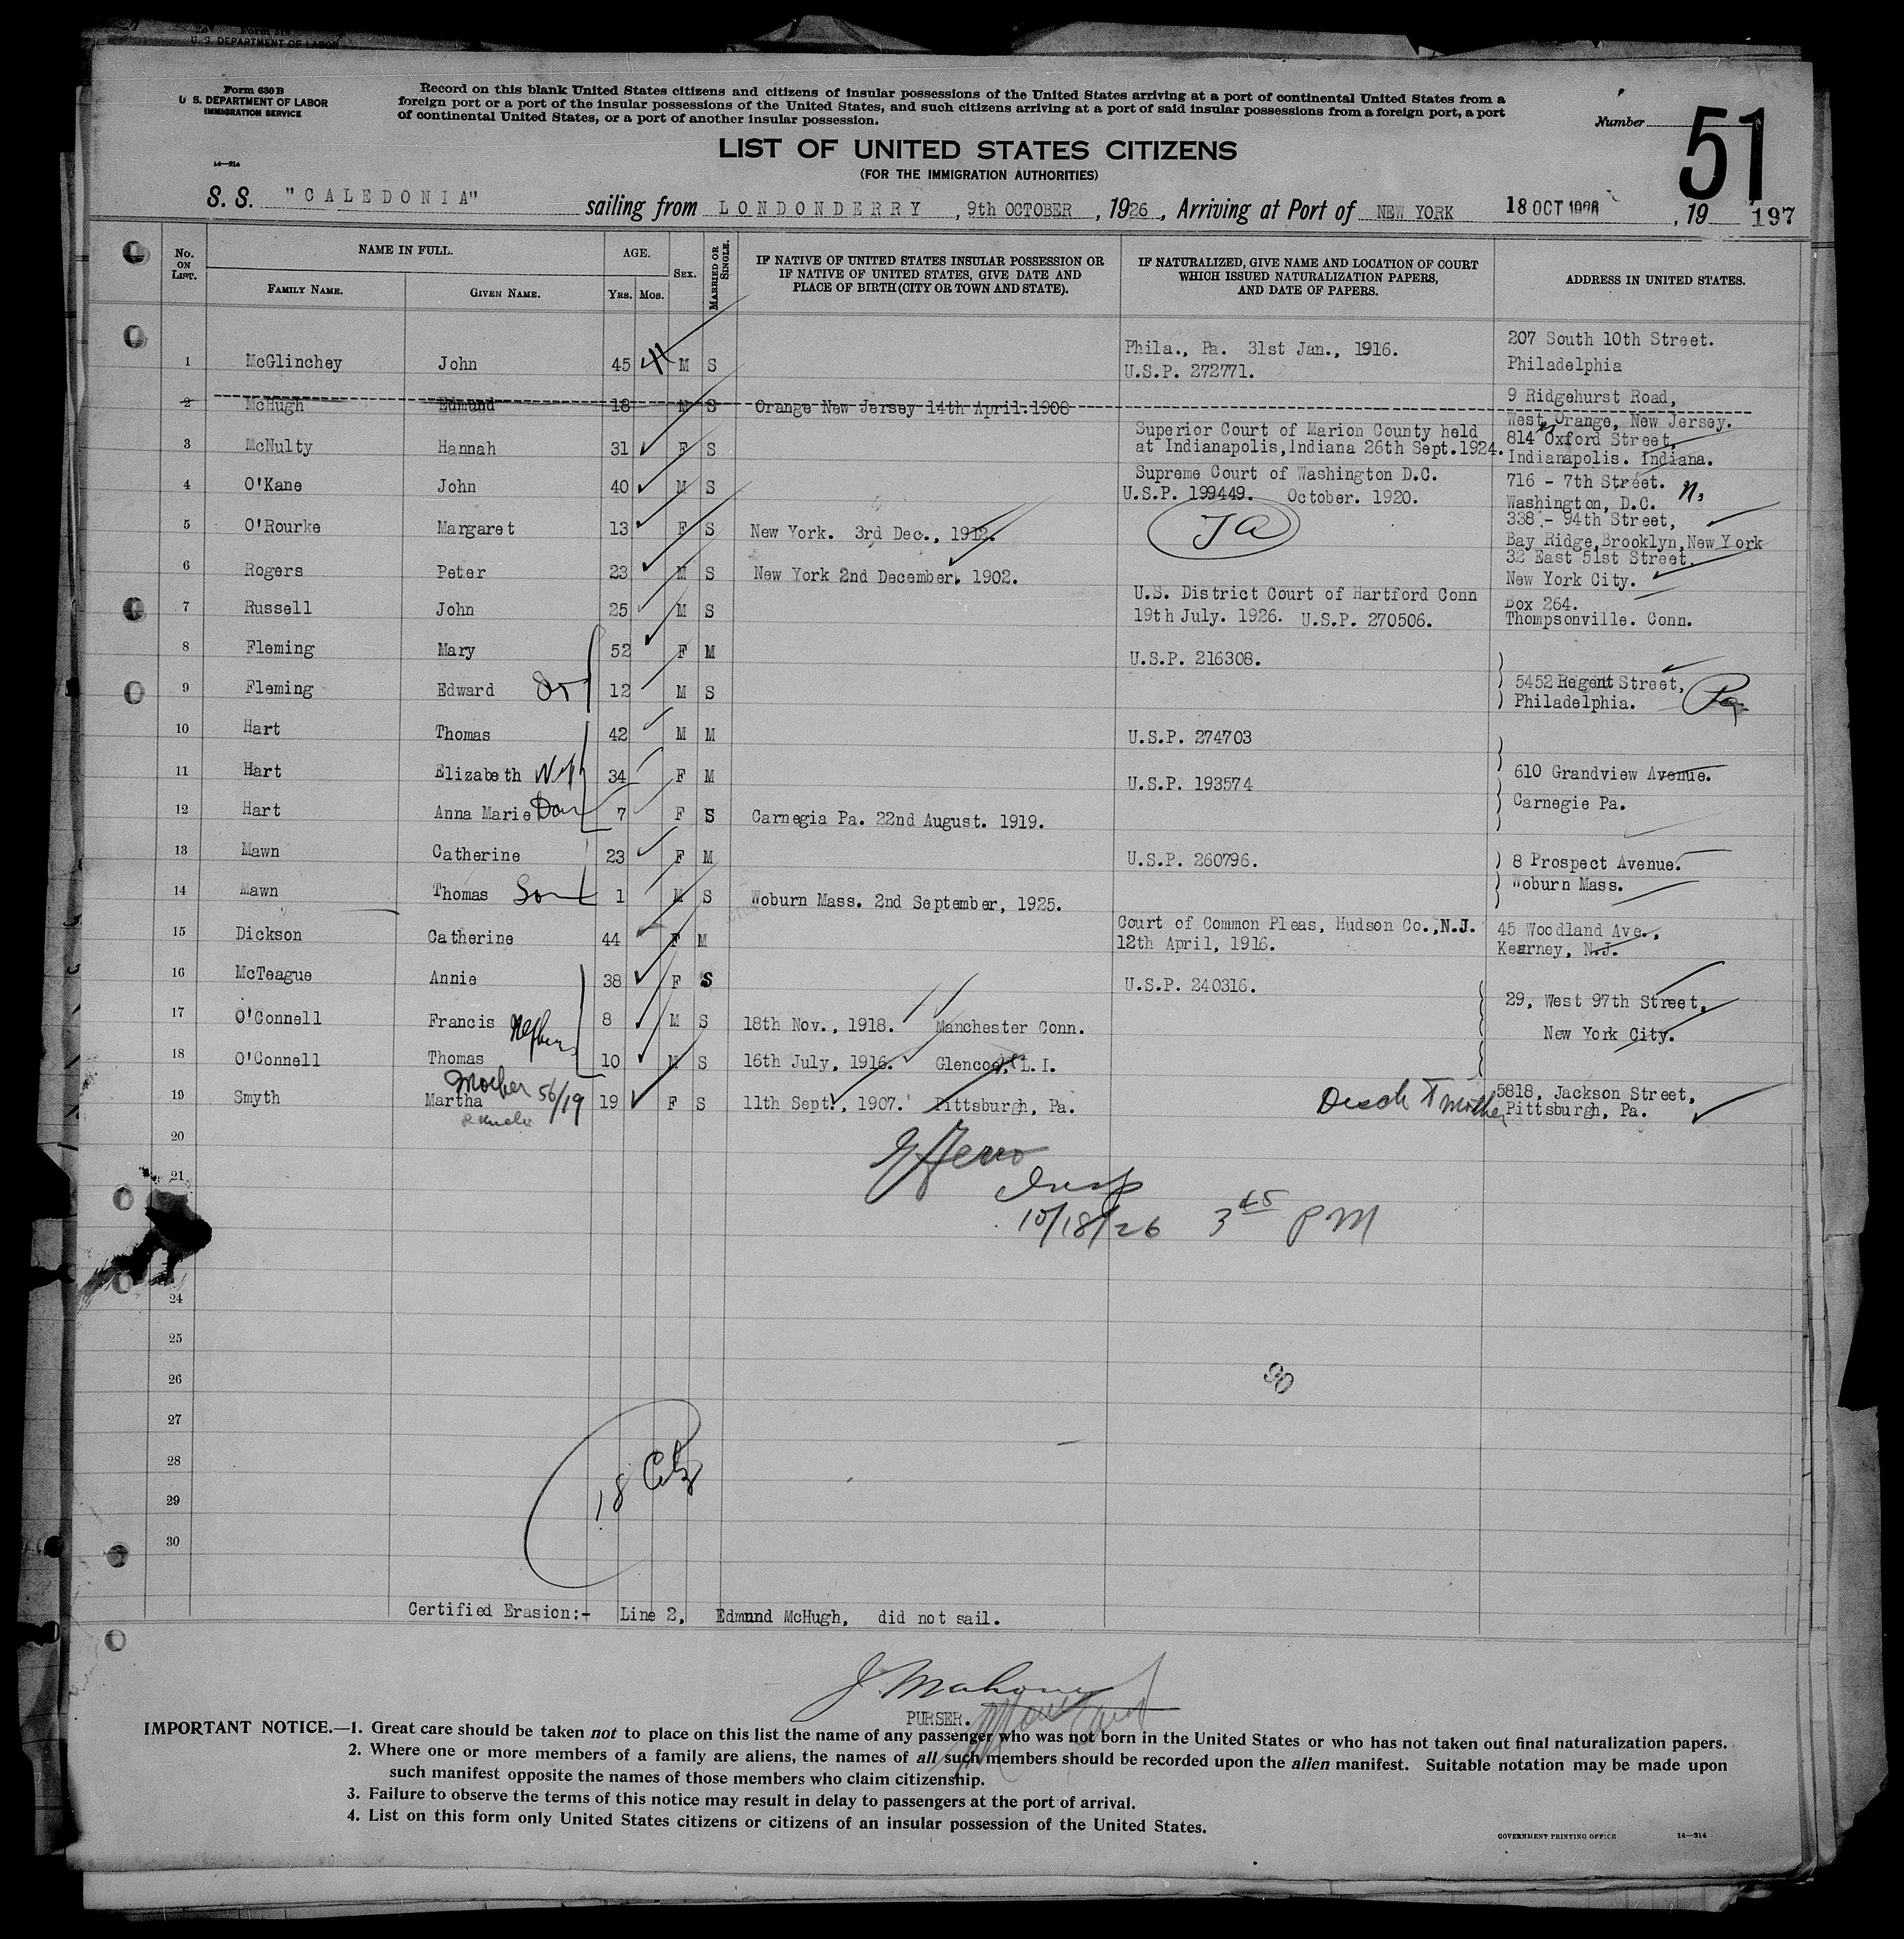 U. S. DEPARTMENT OF LABOR
Form 630 B
U. S. DEPARTMENT OF LABOR
IMMIGRATION SERVICE
14—214
Record on this blank United States citizens and citizens of insular possessions of the United States arriving at a port of continental United States from a
foreign port or a port of the insular possessions of the United States, and such citizens arriving at a port of said insular possessions from a foreign port, a port
of continental United States, or a port of another insular possession.
Number 51
LIST OF UNITED STATES CITIZENS
(FOR THE IMMIGRATION AUTHORITIES)
S. S. "CALEDONIA" sailing from LONDONDERRY, 9th OCTOBER, 1926, Arriving at Port of NEW YORK 18 OCT 1926, 19 197
No. ON LIST. NAME IN FULL. FAMILY NAME. GIVEN NAME. AGE. YRS. MOS. SEX. MARRIED OR SINGLE.
IF NATIVE OF UNITED STATES INSULAR POSSESSION OR
IF NATIVE OF UNITED STATES, GIVE DATE AND
PLACE OF BIRTH (CITY OR TOWN AND STATE).
IF NATURALIZED, GIVE NAME AND LOCATION OF COURT
WHICH ISSUED NATURALIZATION PAPERS,
AND DATE OF PAPERS.
ADDRESS IN UNITED STATES.
1 McGlinchey John 45 M S Phila., Pa. 31st Jan., 1916. U.S.P. 272771. 207 South 10th Street. Philadelphia
2 McHugh Edmund 18 M S Orange New Jersey 14th April.1908 9 Ridgehurst Road, West Orange, New Jersey.
3 McNulty Hannah 31 F S Superior Court of Marion County held at Indianapolis,Indiana 26th Sept.1924. 814 N Oxford Street, Indianapolis. Indiana.
4 O'Kane John 40 M S Supreme Court of Washington D.C. U.S.P. 199449. October. 1920. 716 - 7th Street. N, Washington, D.C.
5 O'Rourke Margaret 13 F S New York. 3rd Dec., 1912. 338 - 94th Street, Bay Ridge,Brooklyn,New York
6 Rogers Peter 23 M S New York 2nd December. 1902. 32 East 51st Street, New York City.
7 Russell John 25 M S U.S. District Court of Hartford Conn 19th July. 1926. U.S.P. 270506. Box 264. Thompsonville. Conn.
8 Fleming Mary 52 F M U.S.P. 216308.
9 Fleming Edward 12 M S 5452 Regent Street, Philadelphia. Pa
10 Hart Thomas 42 M M U.S.P. 274703
11 Hart Elizabeth Wf 34 F M U.S.P. 193574 610 Grandview Avenue.
12 Hart Anna Marie Dau 7 F S Carnegia Pa. 22nd August. 1919. Carnegie Pa.
13 Mawn Catherine 23 F M U.S.P. 260796. 8 Prospect Avenue.
14 Mawn Thomas Son 1 M S Woburn Mass. 2nd September, 1925. Woburn Mass.
15 Dickson Catherine 44 F M Court of Common Pleas, Hudson Co.,N.J. 12th April, 1916. 45 Woodland Ave., Kearney, N.J.
16 McTeague Annie 38 F S U.S.P. 240316. 29, West 97th Street,
17 O'Connell Francis Nephews 8 M S 18th Nov., 1918. Manchester Conn. New York City.
18 O'Connell Thomas 10 M S 16th July, 1916. Glencoe, L.I.
Mother 56/19
19 Smyth Martha 19 F S 11th Sept., 1907. Pittsburgh, Pa. mother 5818, Jackson Street, Pittsburgh, Pa.
20
21
Insp
10/18/26 3 45 PM
24
25
26
90
27
28
18 Citz
29
30
Certified Erasion:- Line 2, Edmund McHugh, did not sail.
J. Mahony
PURSER.
IMPORTANT NOTICE.—1. Great care should be taken not to place on this list the name of any passenger who was not born in the United States or who has not taken out final naturalization papers.
2. Where one or more members of a family are aliens, the names of all such members should be recorded upon the alien manifest. Suitable notation may be made upon
such manifest opposite the names of those members who claim citizenship.
3. Failure to observe the terms of this notice may result in delay to passengers at the port of arrival.
4. List on this form only United States citizens or citizens of an insular possession of the United States.
GOVERNMENT PRINTING OFFICE 14—214